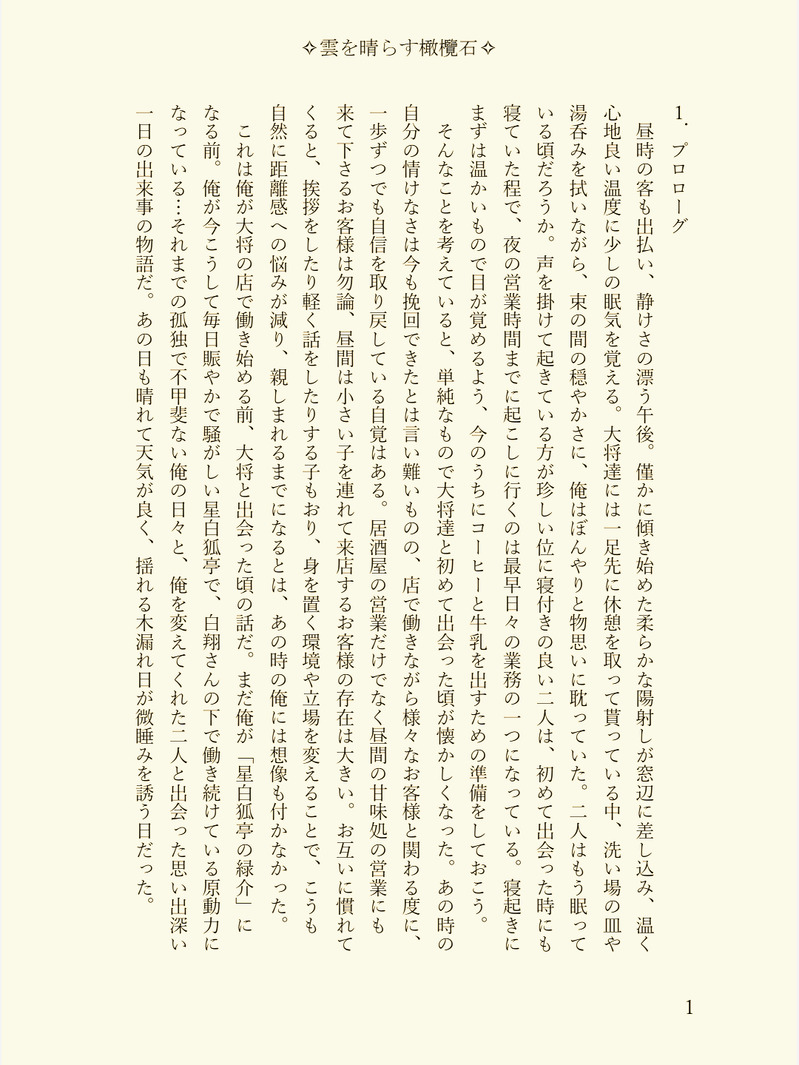 ✧雲を晴らす橄欖石✧
1. プロローグ
　昼時の客も出払い、静けさの漂う午後。僅かに傾き始めた柔らかな陽射しが窓辺に差し込み、温く
心地良い温度に少しの眠気を覚える。大将達には一足先に休憩を取って貰っている中、洗い場の皿や
湯呑みを拭いながら、束の間の穏やかさに、俺はぼんやりと物思いに耽っていた。二人はもう眠って
いる頃だろうか。声を掛けて起きている方が珍しい位に寝付きの良い二人は、初めて出会った時にも
寝ていた程で、夜の営業時間までに起こしに行くのは最早日々の業務の一つになっている。寝起きに
まずは温かいもので目が覚めるよう、今のうちにコーヒーと牛乳を出すための準備をしておこう。
　そんなことを考えていると、単純なもので大将達と初めて出会った頃が懐かしくなった。あの時の
自分の情けなさは今も挽回できたとは言い難いものの、店で働きながら様々なお客様と関わる度に、
一歩ずつでも自信を取り戻している自覚はある。居酒屋の営業だけでなく昼間の甘味処の営業にも
来て下さるお客様は勿論、昼間は小さい子を連れて来店するお客様の存在は大きい。お互いに慣れて
くると、挨拶をしたり軽く話をしたりする子もおり、身を置く環境や立場を変えることで、こうも
自然に距離感への悩みが減り、親しまれるまでになるとは、あの時の俺には想像も付かなかった。
　これは俺が大将の店で働き始める前、大将と出会った頃の話だ。まだ俺が「星白狐亭の緑介」に
なる前。俺が今こうして毎日賑やかで騒がしい星白狐亭で、白翔さんの下で働き続けている原動力に
なっている…それまでの孤独で不甲斐ない俺の日々と、俺を変えてくれた二人と出会った思い出深い
一日の出来事の物語だ。あの日も晴れて天気が良く、揺れる木漏れ日が微睡みを誘う日だった。
1